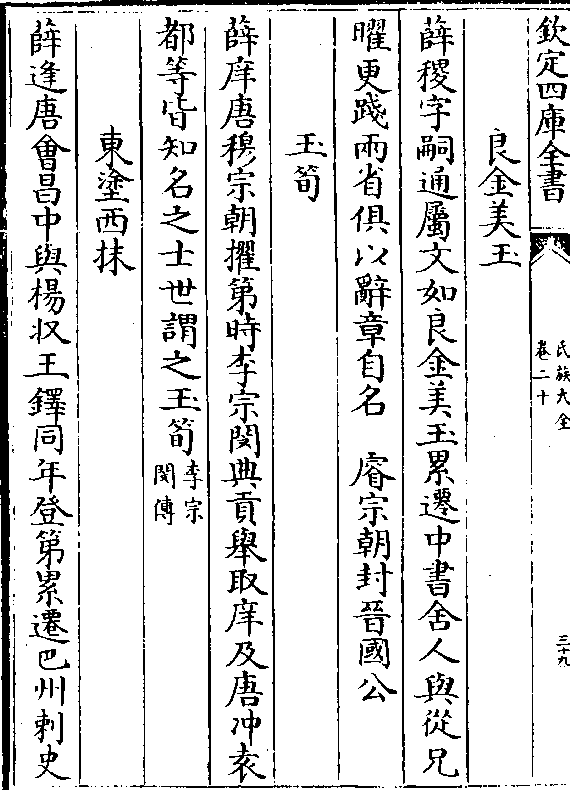 欽定四庫全書
氏族大全
卷二十
三十九
良金美玉
薛稷字嗣通屬文如良金美玉累遷中書舍人與從兄
曜更踐兩省俱以辭章自名 睿宗朝封晉國公
玉筍
薛庠唐穆宗朝擢第時李宗閔典貢舉取庠及唐冲袁
都等皆知名之士世謂之玉筍李宗閔傳
東塗西抹
薛逢唐會昌中與楊收王鐸同年登第累遷巴州刺史